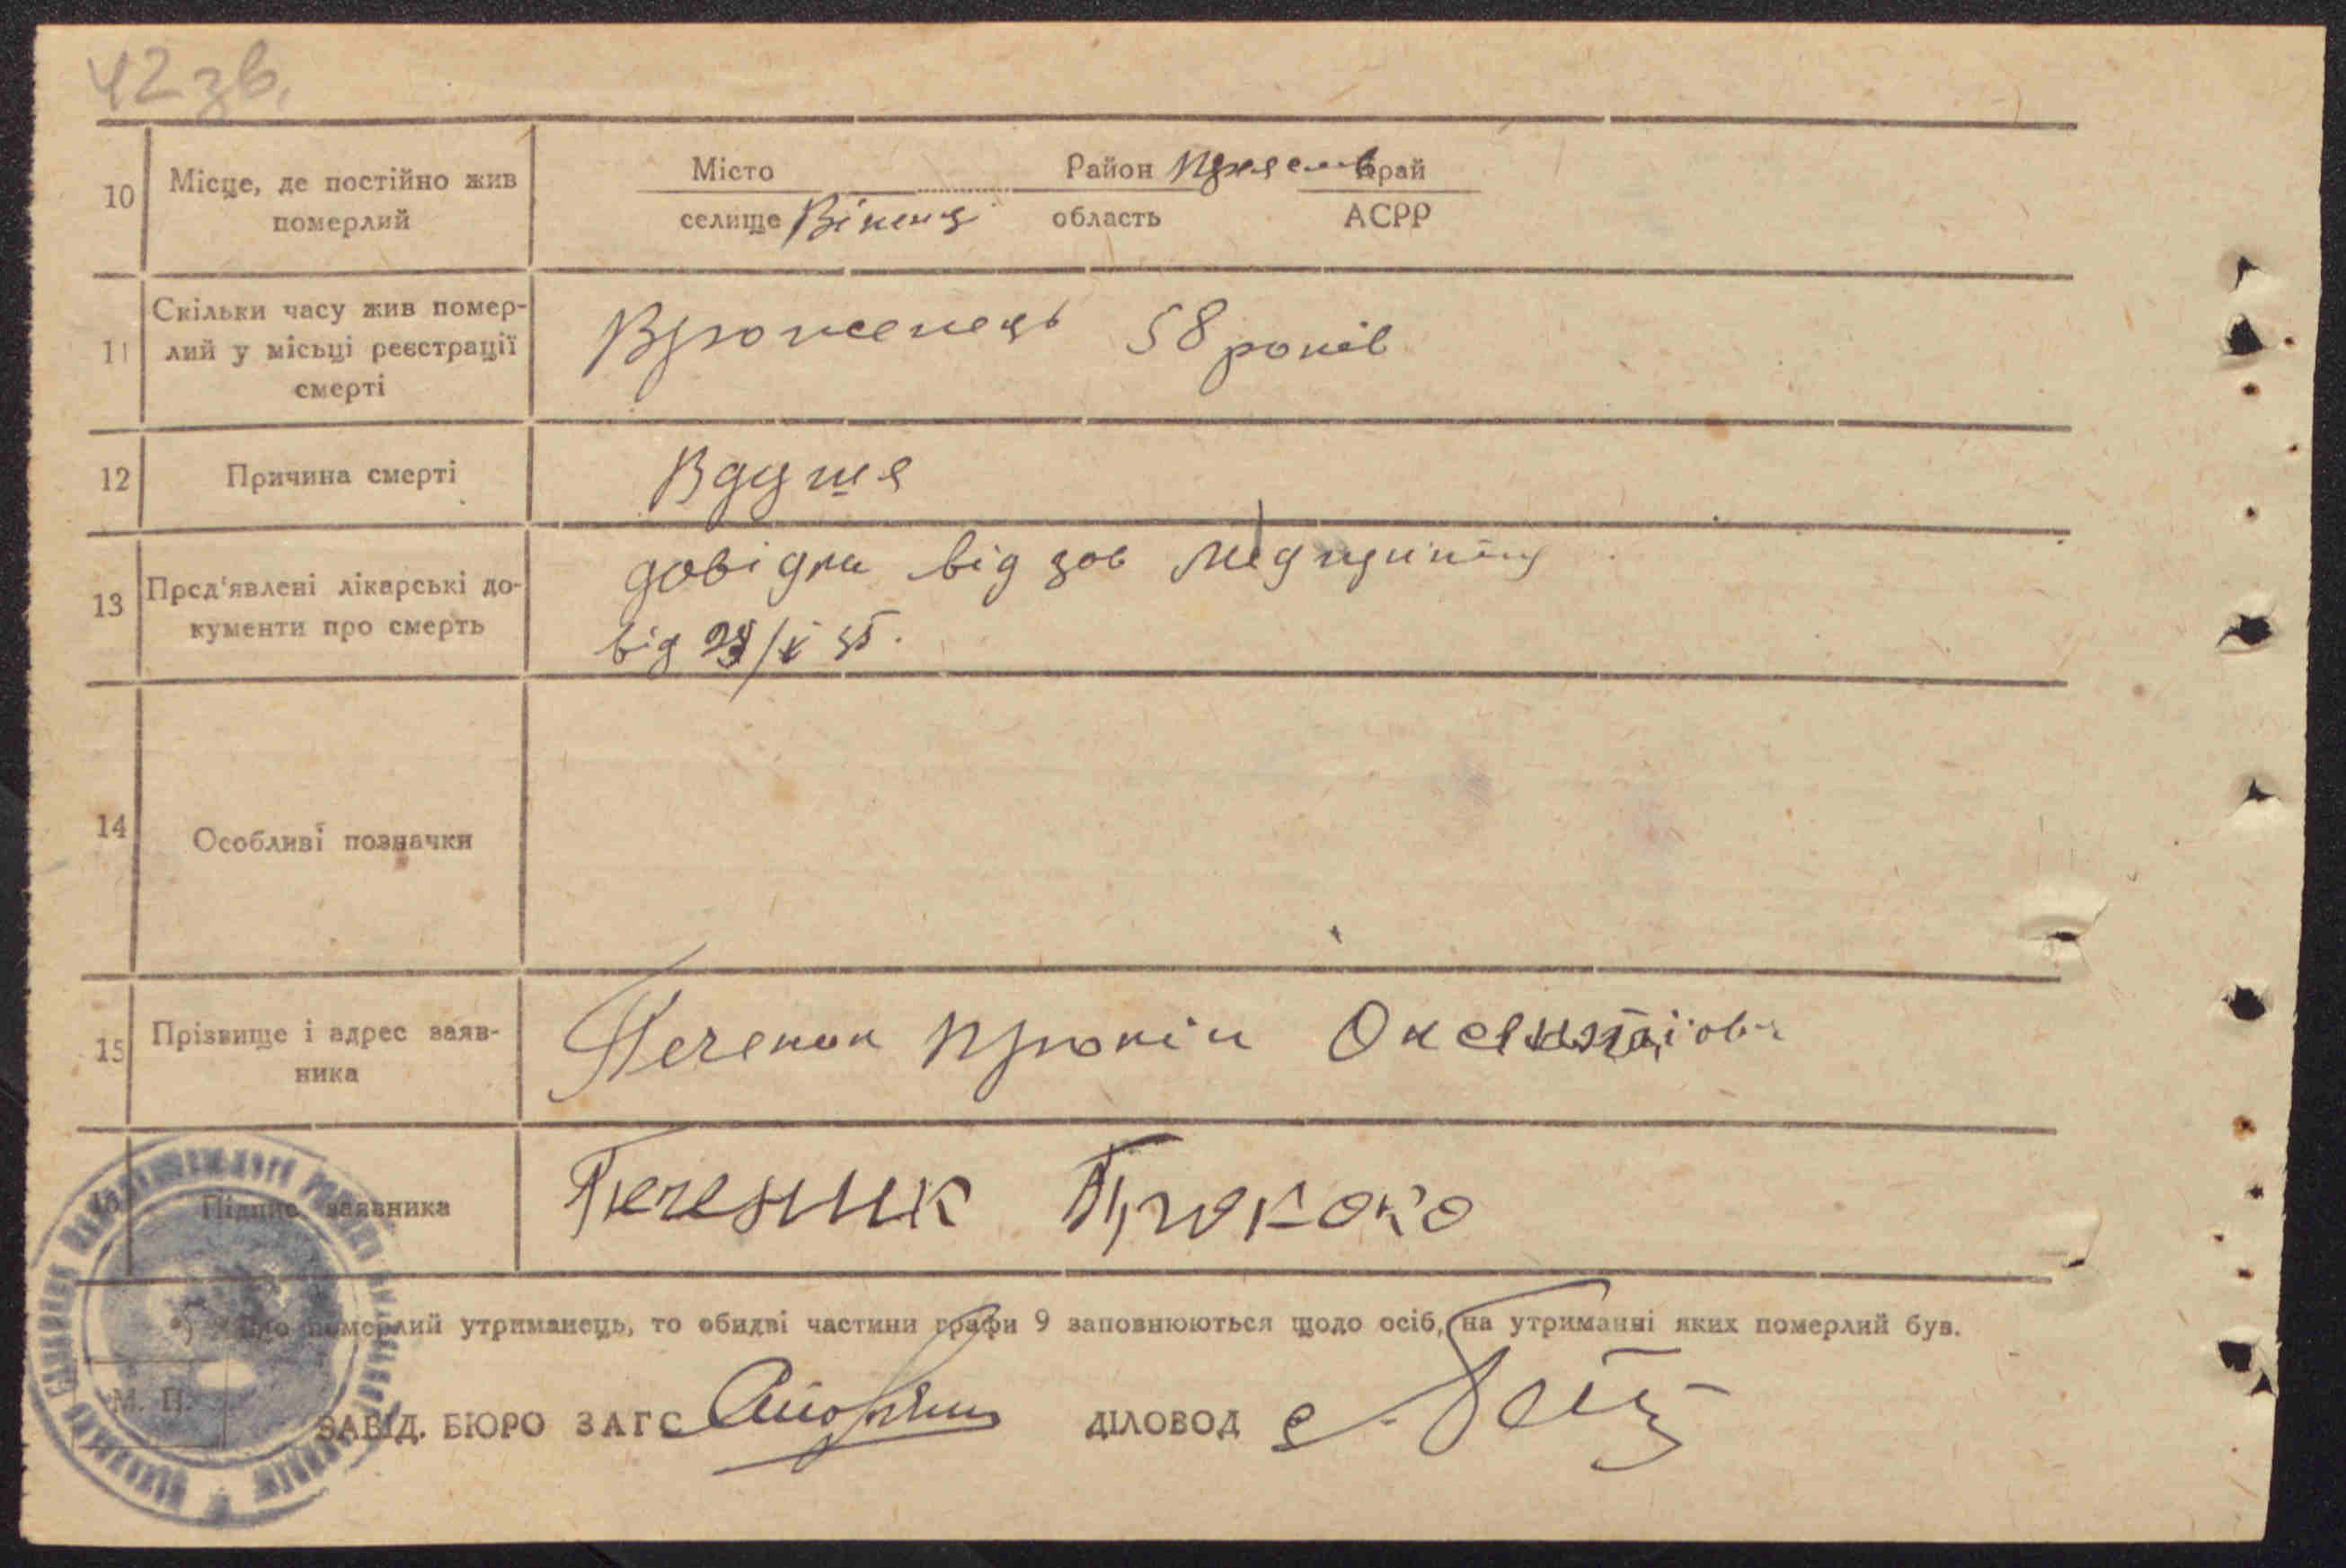 42 зв.
10 Місце, де постійно жив
померлий
Місто Район край
селище область АСРР
11 Скільки часу жив помер-
лий у місьці реєстрації
смерті
Вроженець 58 років
12 Причина смерті
Вдушя
13 Пред'явлені лікарські до-
кументи про смерть
довідка від зав медпункту
від
14 Особливі позначки
15 Прізвище і адрес заяв-
ника
Печеник Прокіп
Підпис заявника
Печеник
померлий утриманець, то обидві частини графи 9 заповнюються щодо осіб, на утриманні яких померлий був.
М. П.
ЗАВІД. БЮРО ЗАГС ДІЛОВОД